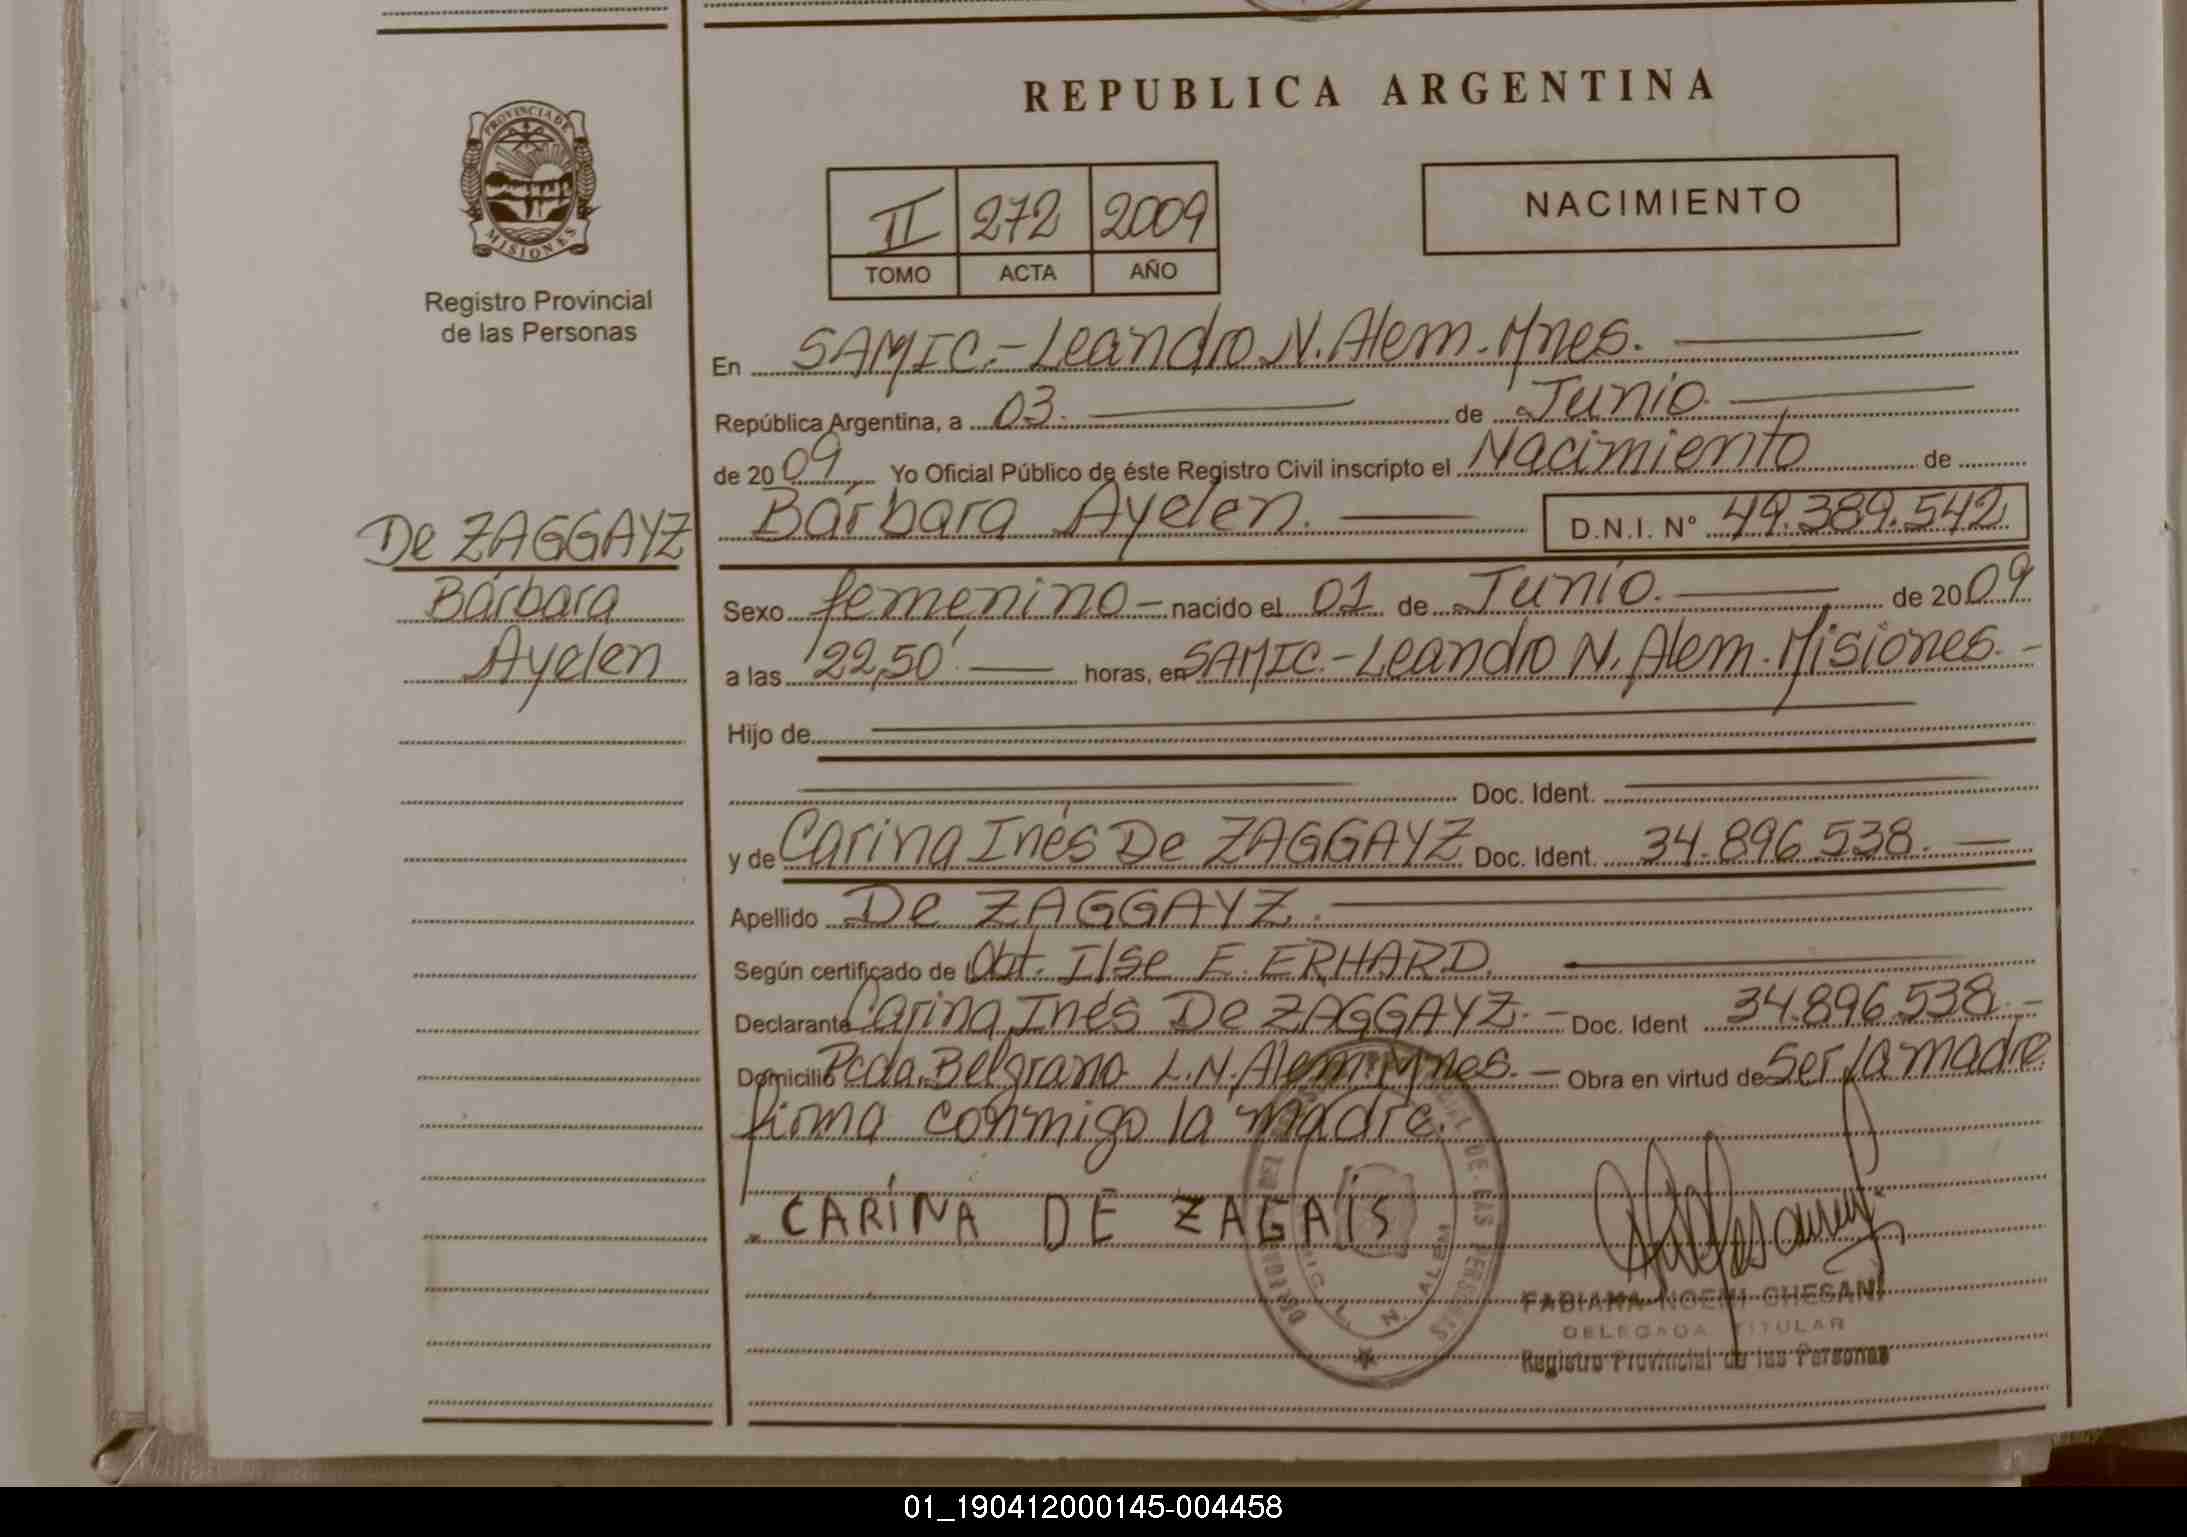 REPUBLICA ARGENTINA
PROVINCIA DE MISIONES
Registro Provincial
de las Personas
II 272 2009
TOMO ACTA AÑO
NACIMIENTO
En SAMIC.-Leandro N. Alem. Mnes.
República Argentina, a 03. de Junio.
de 2009 Yo Oficial Público de éste Registro Civil inscripto el Nacimiento de
Bárbara Ayelen. D.N.I. N° 49.389.542
De ZAGGAYZ
Bárbara
Ayelen
Sexo femenino - nacido el 01 de Junio. de 2009
a las 22,50' horas, en SAMIC.-Leandro N. Alem. Misiones.-
Hijo de
Doc. Ident.
y de Carina Inés De ZAGGAYZ Doc. Ident. 34.896.538.
Apellido De ZAGGAYZ.
Según certificado de Obt. Ilse E. ERHARD.
Declarante Carina Inés De ZAGGAYZ. - Doc. Ident 34.896.538.-
Domicilio Pcda. Belgrano. L.N. Alem. Mnes. - Obra en virtud de Ser la madre
firma conmigo la madre.
CARINA DE ZAGAIS
L. N. ALEM
DE LAS PERSONAS
FABIANA NOEMI CHESANI
DELEGADA TITULAR
Registro Provincial de las Personas
01_190412000145-004458